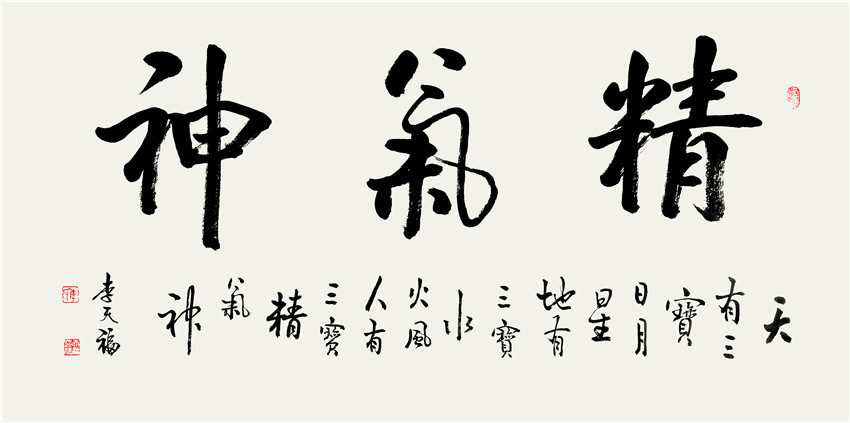 精氣神
天
有三
寶
日月
星
地有
三寶
水
火風
人有
三寶
精
氣
神
李天福